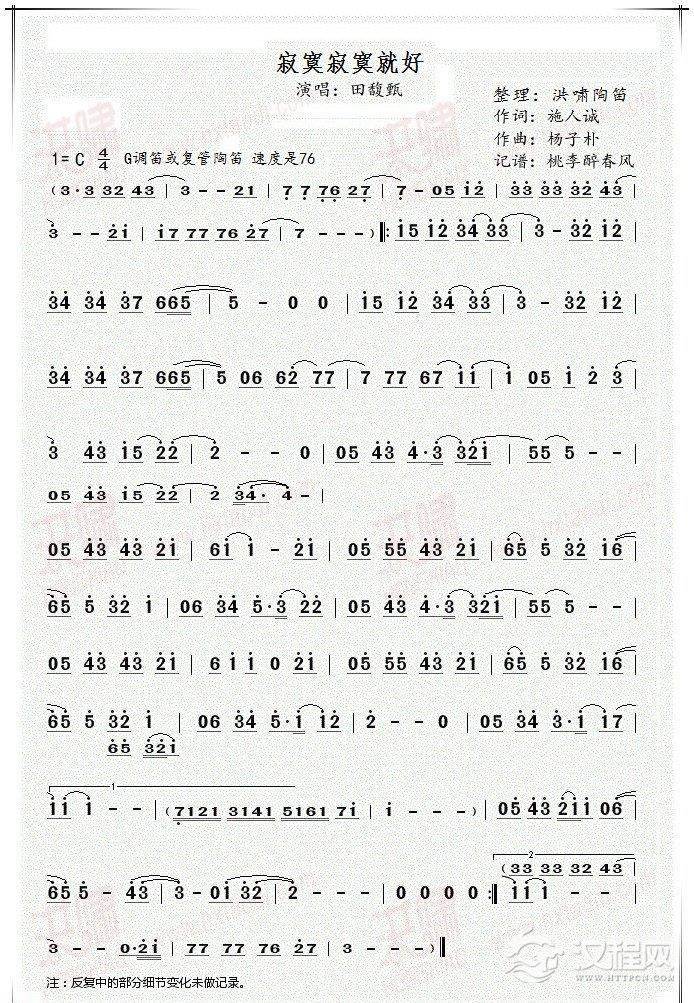 寂寞寂寞就好
演唱：田馥甄
整理：洪啸陶笛
作词：施人诚
作曲：杨子朴
记谱：桃李醉春风
1=C 4/4 G调笛或复管陶笛 速度是76
(3·3 32 43 | 3 - - 21 | 77 76 27 | 7 - 05 12 | 33 33 32 43
3 - - 21 | 17 77 76 27 | 7 - - ) ‖: 15 12 34 33 | 3 - 32 12
34 34 37 665 | 5 - 0 0 | 15 12 34 33 | 3 - 32 12
34 34 37 665 | 5 06 62 77 | 7 77 67 11 | 1 05 1 2 3
3 43 15 22 | 2 - - 0 | 05 43 4·3 321 | 55 5 - -
05 43 15 22 | 2 34· 4 - |
05 43 43 21 | 61 1 - 21 | 05 55 43 21 | 65 5 32 16
65 5 32 1 | 06 34 5·3 22 | 05 43 4·3 321 | 55 5 - -
05 43 43 21 | 6 1 1 0 21 | 05 55 43 21 | 65 5 32 16
65 5 32 1 | 06 34 5·1 12 | 2 - - 0 | 05 34 3·1 17
65 321
1
11 1 - - | (7121 3141 5161 71 | 1 - - - ) | 05 43 211 06
2
(33 33 32 43
65 5 - 43 | 3 - 01 32 | 2 - - - | 0 0 0 0 :‖ 11 1 - -
3 - - 0·21 | 77 77 76 27 | 7 - - - ) ‖
注：反复中的部分细节变化未做记录。
汉程网
WWW.HTTPCN.COM